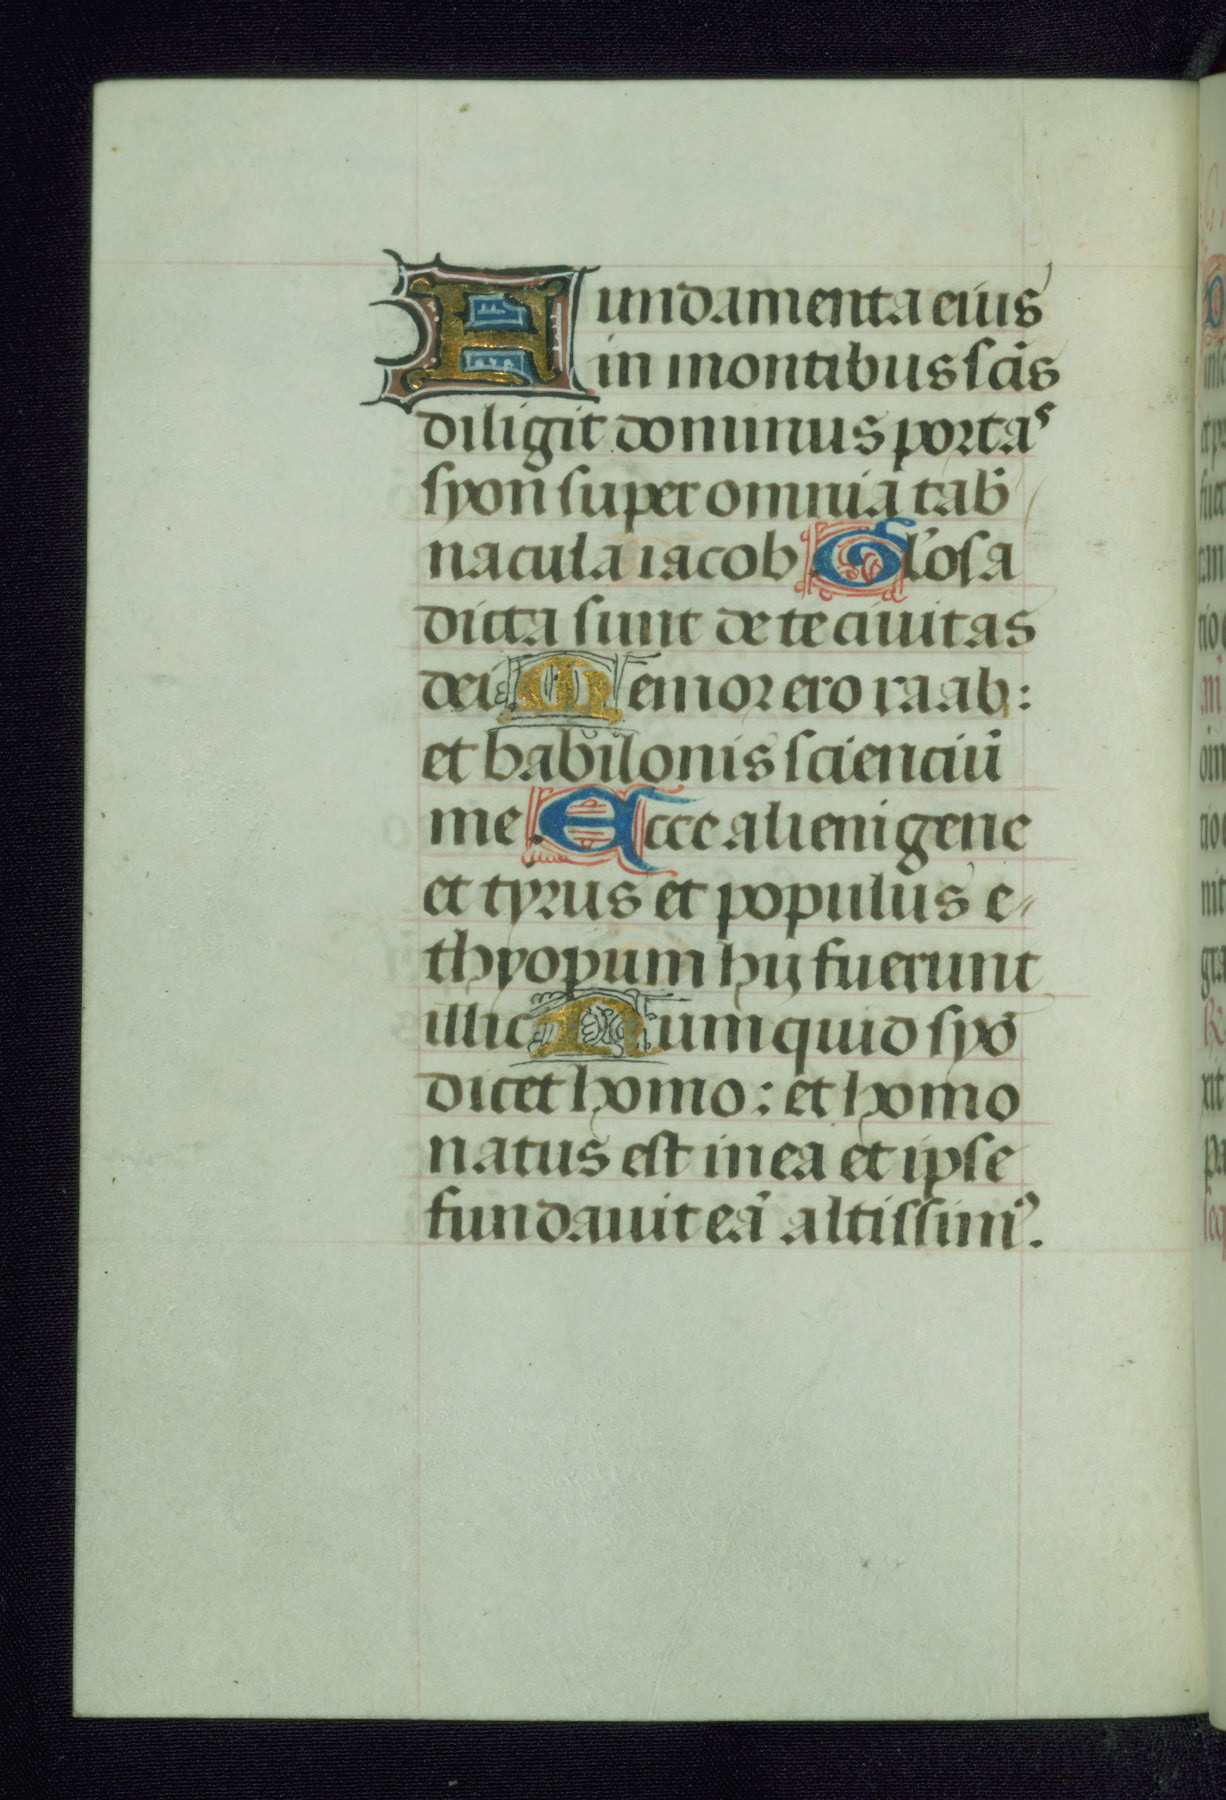 Fundamenta eius
in montibus scīs
diligit dominus portas
syon super omnia tab̄
nacula iacob Gl'osa
dicta sunt de te ciuitas
dei Memor ero raab:
et babilonis scienciū
me. Ecce alienigene
et tyrus et populus e-
thyopum hij fuerunt
illic Numquid syō
dicet homo: et homo
natus est in ea et ipse
fundauit eā altissimꝰ.